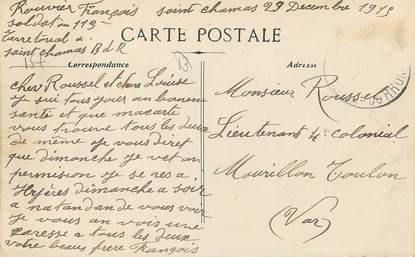 Rouvier François saint chamas 29 Decembre 1915
soldat au 113
Terretorial a
saint chamas B d R
CARTE POSTALE
Correspondance
cher Roussel et chere Louise
Je sui tous jour an bonne
santé et que macarte
vous trouve tous les deux
de même Je vous diret
que dimanche Je vet an
permision Je se res a
Hyères dimanche a soir
a natandan de vous voir
Je vous an vois une
caresse a tous les deux
votre beaus frere François
Adresse
Monsieur Roussel
Lieutenant 4e colonial
Mourillon Toulon
(Var)